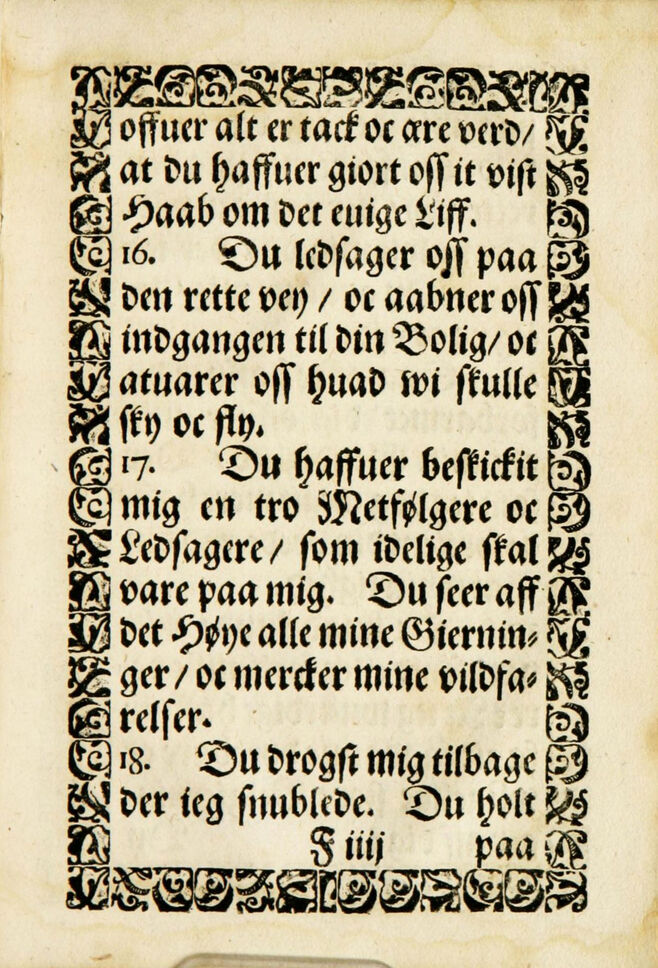 offuer alt er tack oc ære verd/
at du haffuer giort oss it vist
Haab om det euige Liff.
16. Du ledsager oss paa
den rette vey / oc aabner oss
indgangen til din Bolig/ oc
atuarer oss huad wi skulle
sky oc fly.
17. Du haffuer beskickit
mig en tro Metfølgere oc
Ledsagere / som idelige skal
vare paa mig. Du seer aff
det Høye alle mine Giernin⸗
ger / oc mercker mine vildfa⸗
relser.
18. Du drogst mig tilbage
der ieg snublede. Du holt
F iiij paa